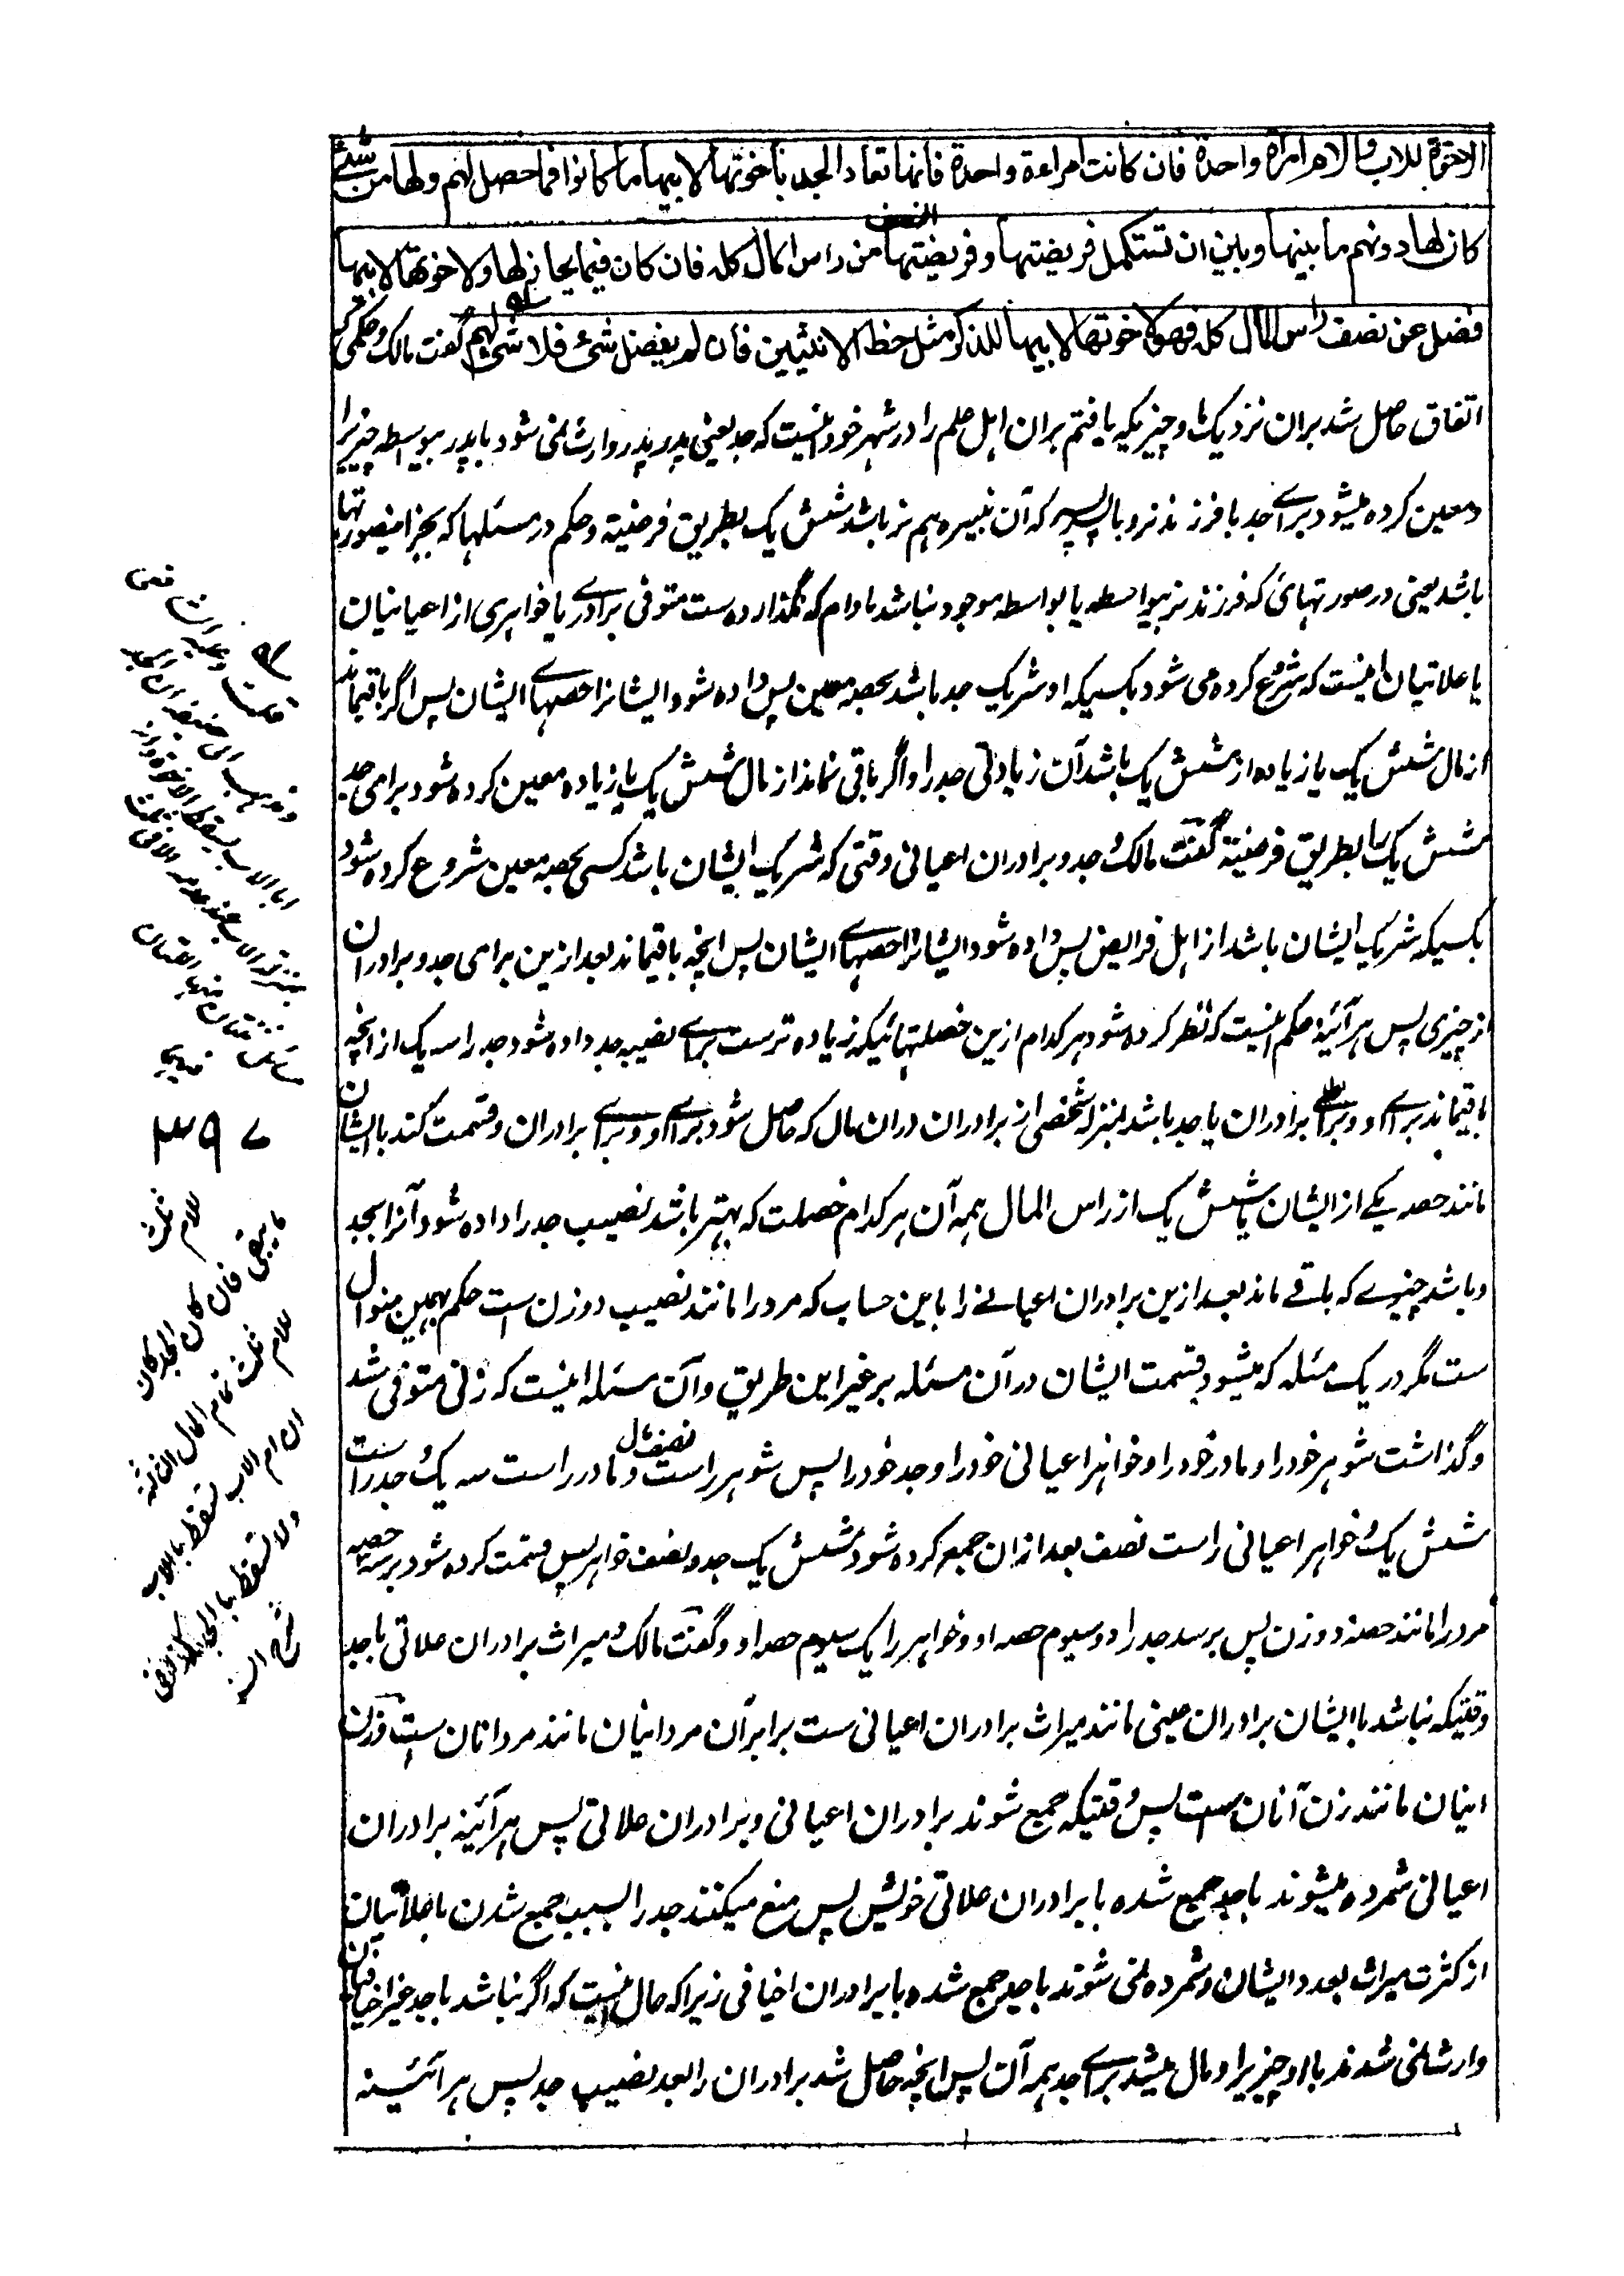 الاخوة للاب والام امراة واحدة فان كانت امراءة واحدة فانها تعاد الجد باخوتها لابيها ما كانوا فما حصل لهم ولها من شئ
كان لها دونهم ما بينها وبين ان تستكمل فريضتها وفريضتها النصف من راس المال كله فان كان فيما يحاز لها ولاخوتها لابيها
فضل عن نصف راس المال كله فهو لاخوتها لابيها للذكر مثل حظ الانثيين فان لم يفضل شئ فلا شئ لهم گفت مالک حکمی که
اتفاق حاصل شد بران نزدیک ما و چیزیکه یافتم بران اهل علم را در شهر خود اینست که جد یعنی پدر پدر وارث نمی شود با پدر بیواسطه چیزیرا
و معین کرده میشود برای جد با فرزند نر و با پسر پسر که آن نبیره هم نر باشد شش یک بطریق فرضیة و حکم در مسئلها که بجز اینصورتها
باشد یعنی در صورتهائ که فرزند نر بیواسطه یا بواسطه موجود نباشد مادام که نگذارده ست متوفی برادرے یا خواهری از اعیانیان
یا علاتیان اینست که شروع کرده می شود بکسیکه او شریک جد باشد بحصه معین پس داده شود ایشانرا حصهاے ایشان پس اگر باقیماند
از مال شش یک یا زیاده از شش یک باشد آن زیادتی جد را و اگر باقی نماند از مال شش یک یا زیاده معین کرده شود برای جد
شش یک را بطریق فرضیة گفت مالک جد و برادران اعیانی وقتی که شریک ایشان باشد کسی بحصه معین شروع کرده شود
بکسیکه شریک ایشان باشد از اهل فرایض پس داده شود ایشانرا حصهاے ایشان پس انچه باقیماند بعد ازین برای جد و برادران
از چیزی پس هر آئینه حکم اینست که نظر کرده شود هر کدام ازین خصلتهائیکه زیاده ترست براے نصیبه جد داده شود جد را سه یک از انچه
باقیماند براے او و براے برادران یا جد باشد بمنزله شخصی از برادران دران مال که حاصل شود براے او و براے برادران و قسمت کند با ایشان
مانند حصه یکے از ایشان یا شش یک از راس المال همه آن هر کدام خصلت که بهتر باشد نصیب جد را داده شود آنرا بجد
و باشد چیزے که باقے ماند بعد ازین برادران اعیانے را باین حساب که مرد را مانند نصیب دو زن است حکم بهمین منوال
ست مگر در یک مسئله که میشود قسمت ایشان در آن مسئله بر غیر این طریق و آن مسئله اینست که زنی متوفی شد
و گذاشت شوهر خود را و مادر خود را و خواهر اعیانی خود را و جد خود را پس شوهر راست نصف مال و مادر راست سه یک و جد راست
شش یک و خواهر اعیانی راست نصف بعد ازان جمع کرده شود شش یک جد و نصف خواهر پس قسمت کرده شود بر سه حصه
مرد را مانند حصه دو زن پس برسد جد را دو سیوم حصه او و خواهر را یک سیوم حصه او و گفت مالک میراث برادران علاتی با جد
وقتیکه نباشد با ایشان برادران عینی مانند میراث برادران اعیانی ست برابر آن مرد اینان مانند مرد آنان ست و زن
اینان مانند زن آنان ست پس وقتیکه جمع شوند برادران اعیانی و برادران علاتی پس هر آئینه برادران
اعیانی شمرده میشوند با جد جمع شده با برادران علاتی خویش پس منع میکنند جد را بسبب جمع شدن با علاتیان
از کثرت میراث بعدد ایشان و شمرده نمی شوند با جد جمع شده با برادران اخیافی زیرا که حال اینست که اگر نباشد با جد غیر اخیافیان
وارث نمی شدند با او چیزیرا و مال میشد براے جد همه آن پس انچه حاصل شد برادران را بعد نصیب جد پس هر آئینه
ما یبقی فان كان الجد كان
للام ثلث تمام المال الثالثة
ان ام الاب تسقط بالاب
ولا تسقط بالجد